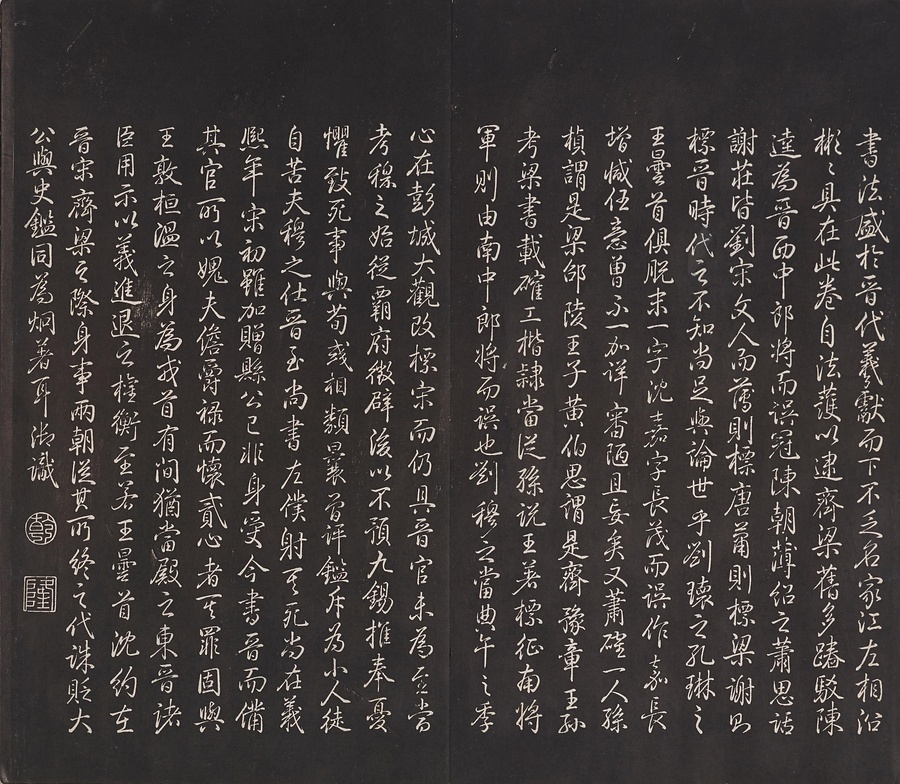 書法盛於晉代羲獻而下不乏名家江左相沿
彬彬具在此卷自法護以逮齊梁舊多踳駁陳
逵為晉西中郎將而誤冠陳朝薄紹之蕭思話
謝莊皆劉宋文人而薄則標唐蕭則標梁謝則
標晉時代之不知尚足與論世乎劉瓌之孔琳之
王曇首俱脫末一字沈嘉字長茂而誤作嘉長
增減任意曾不一加詳審陋且妄矣又蕭確一人孫
楨謂是梁邵陵王子黃伯思謂是齊豫章王孫
考梁書載確工楷隸當從孫說王著標征南將
軍則由南中郎將而誤也劉穆之當典午之季
心在彭城大觀改標宋而仍具晉官未為至當
考穆之始從霸府徵辟後以不預九錫推奉憂
懼致死事與荀彧相類曩曾評鑑斥為小人徒
自苦夫穆之仕晉至尚書左僕射其死尚在義
熙年宋初雖加贈縣公已非身受今書晉而備
其官所以媿夫儋爵祿而懷貳心者其罪固與
王敦桓溫之身為戎首有間猶當殿之東晉諸
臣用示以義進退之權衡至若王曇首沈約在
晉宋齊梁之際身事兩朝從其所終之代誅貶大
公與史鑑同為炯著耳御識
乾
隆